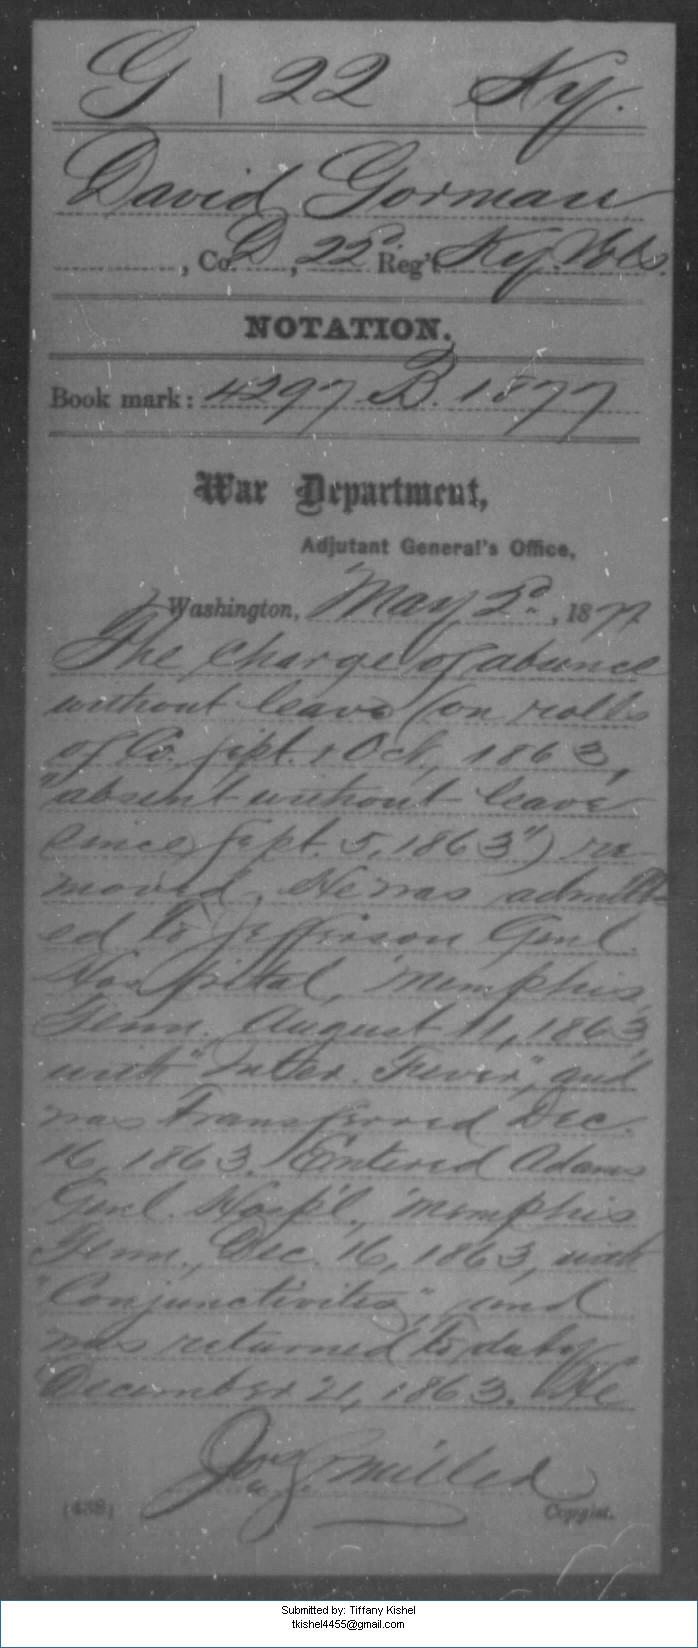 G | 22 Ky.
David Gorman
, Co. D, 22d Reg't Ky. Vols.
NOTATION.
Book mark: 4297 B. 1877
War Department,
Adjutant General's Office,
Washington, May 2d, 1877
The charge of absence
without leave (on rolls
of Co. Sept. & Oct., 1863,
"absent without leave
since Sept. 5, 1863") re-
moved. He was admitt-
ed to Jefferson Genl.
Hospital, Memphis,
Tenn. August 11, 1863
with "Inter. Fever", and
was transferred Dec.
16, 1863. Entered Adams
Genl. Hosp'l, Memphis
Tenn., Dec. 16, 1863, with
"Conjunctivites", and
was returned to duty
December 21, 1863. He
Miller
(438) Copyist.
Submitted by: Tiffany Kishel
tkishel4455@gmail.com